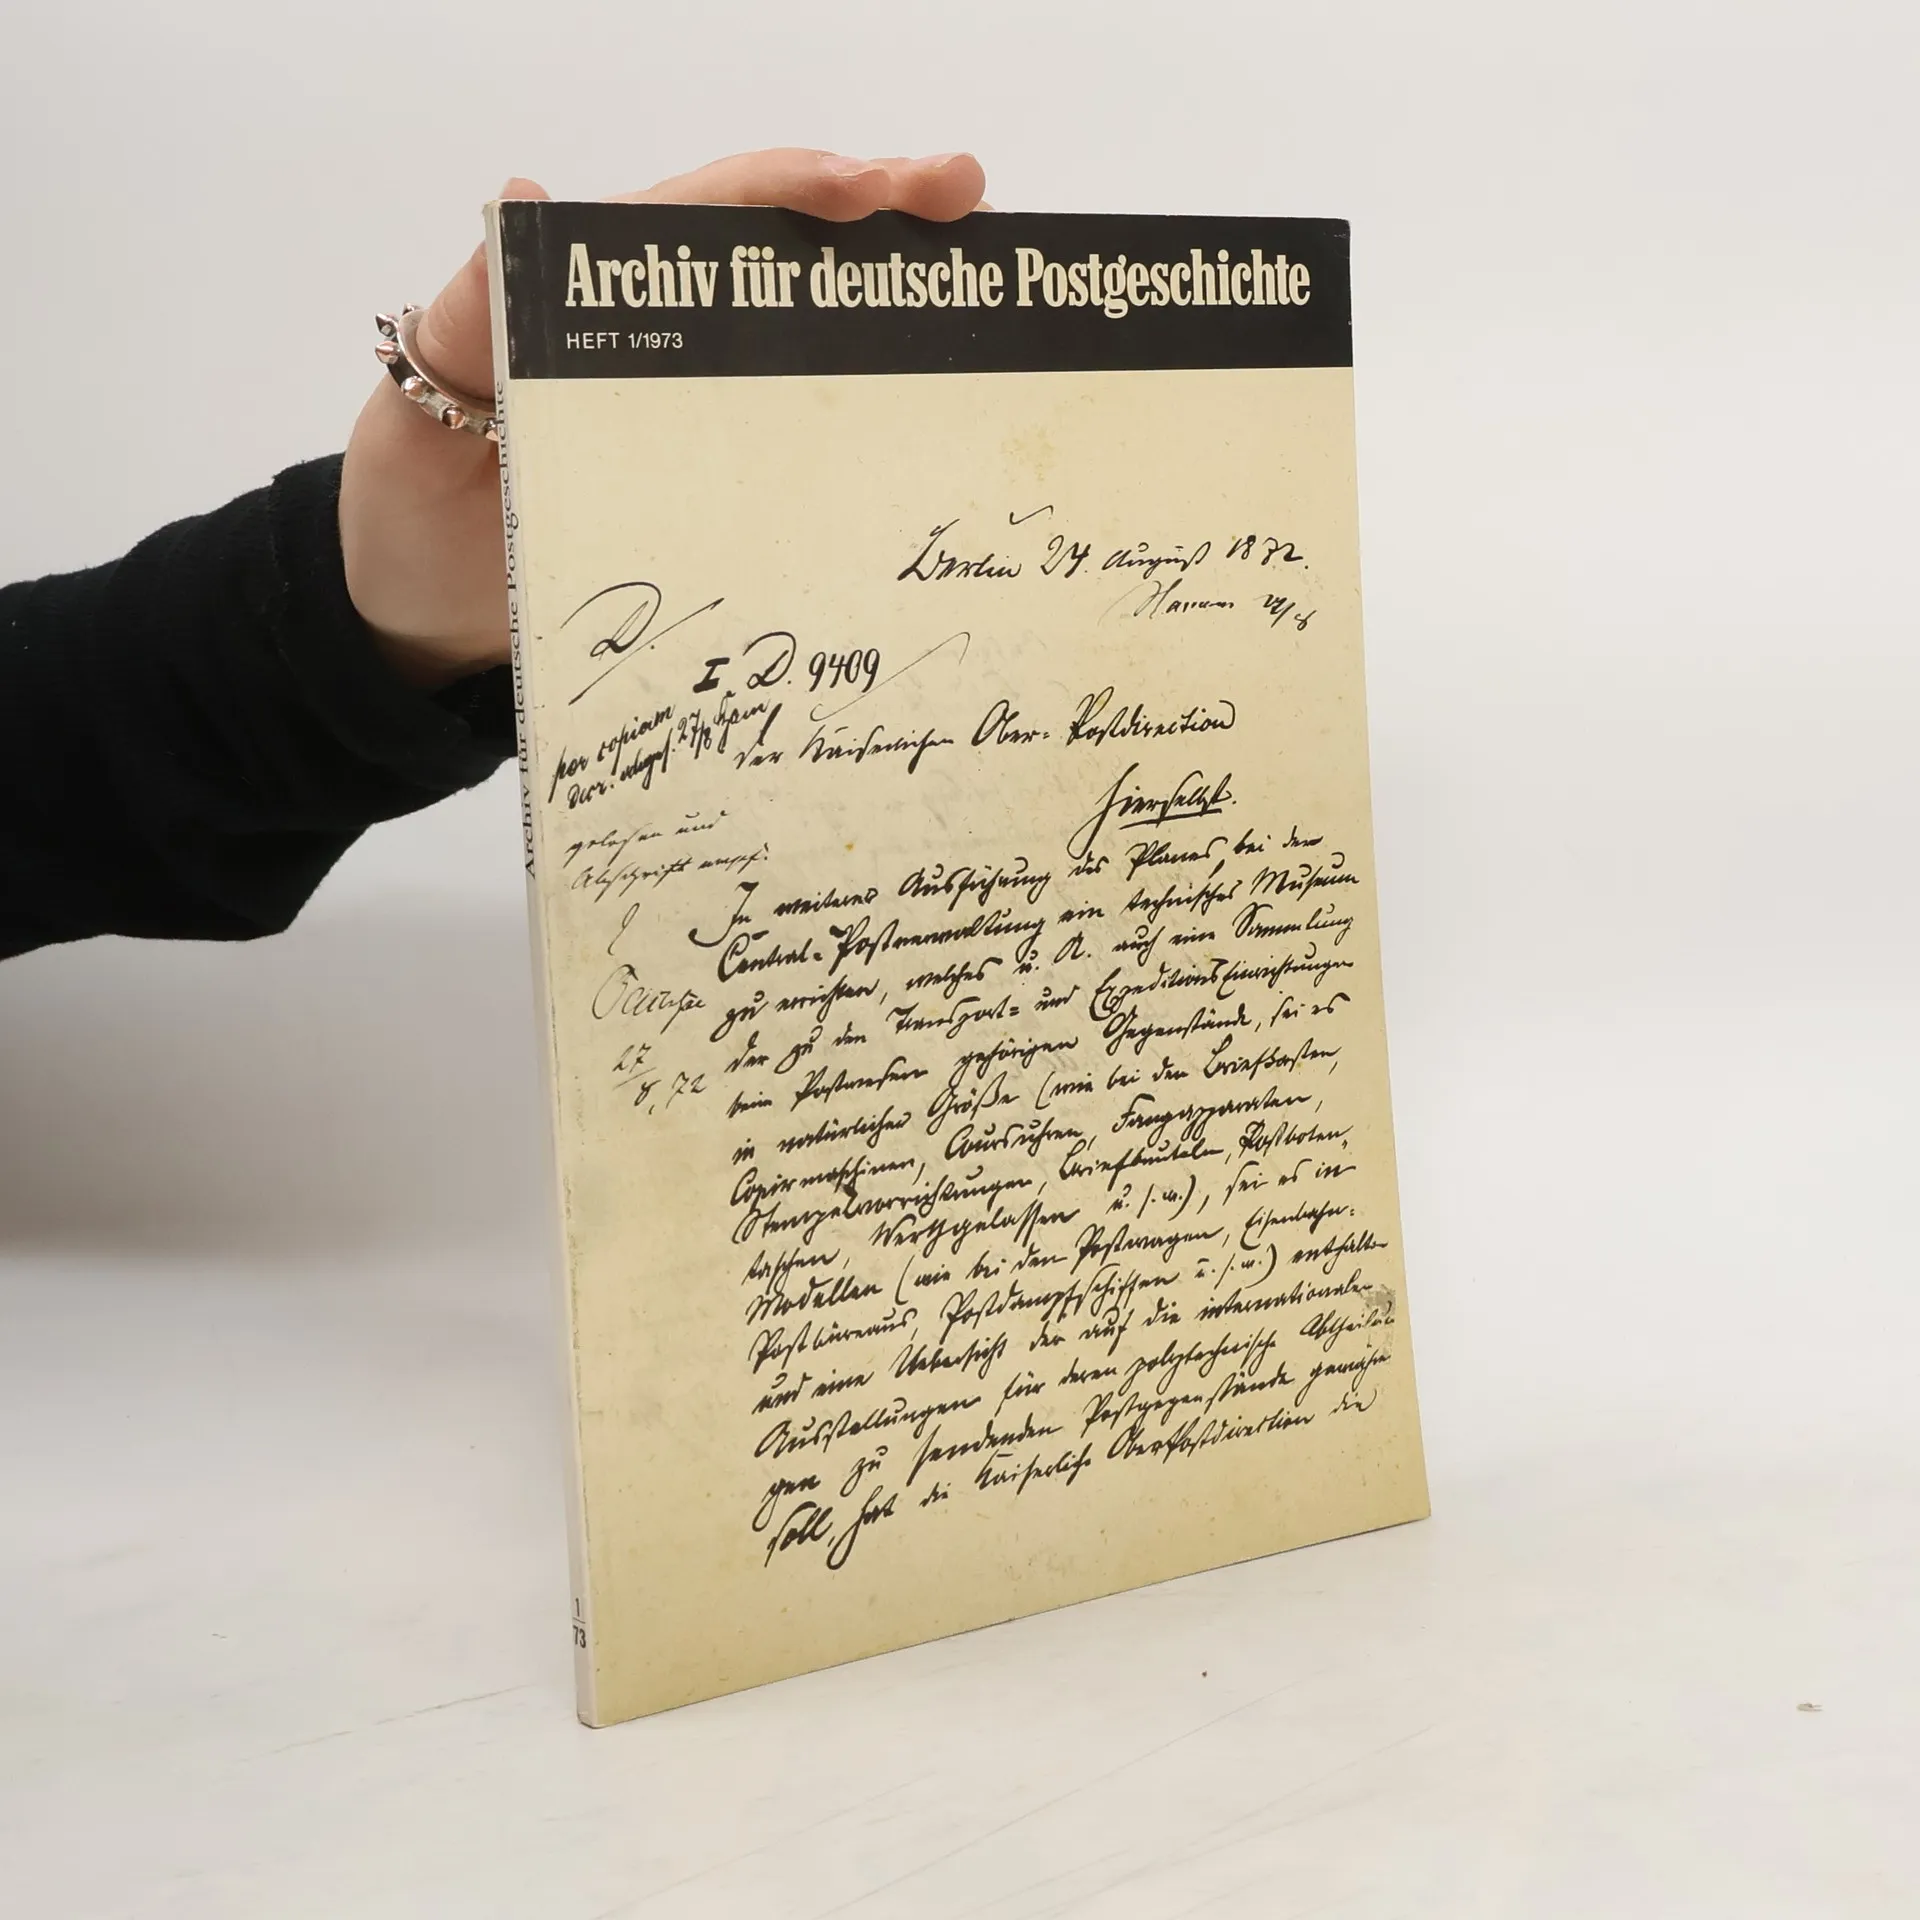 Archiv für deutsche Postgeschichte
HEFT 1/1973
Archiv für deutsche Postgeschichte
1
73
Berlin 24. August 1872.
I. D. 9409
per copiam
27/8
der Kaiserlichen Ober-Postdirection
hierselbst.
gelesen und
Abschrift empf.
27
8, 72
In weiterer Ausführung des Planes, bei der
Central-Postverwaltung ein technisches Museum
zu errichten, welches u. A. auch eine Sammlung
der zu den Transport- und Expeditions Einrichtungen
beim Postwesen gehörigen Gegenstände, sei es
in natürlicher Größe (wie bei den Briefkasten,
Copirmaschinen, Coursuhren, Fangapparaten,
Stempelvorrichtungen, Briefbeuteln, Postboten-
taschen, Werthgelassen u. s. w.), sei es in
Modellen (wie bei den Postwagen, Eisenbahn-
Postbüreaus, Postdampfschiffen u. s. w.) enthalten
und eine Uebersicht der auf die internationalen
Ausstellungen für deren polytechnische Abtheilun
gen zu sendenden Postgegenstände gewähren
soll, hat die Kaiserliche OberPostdirection die